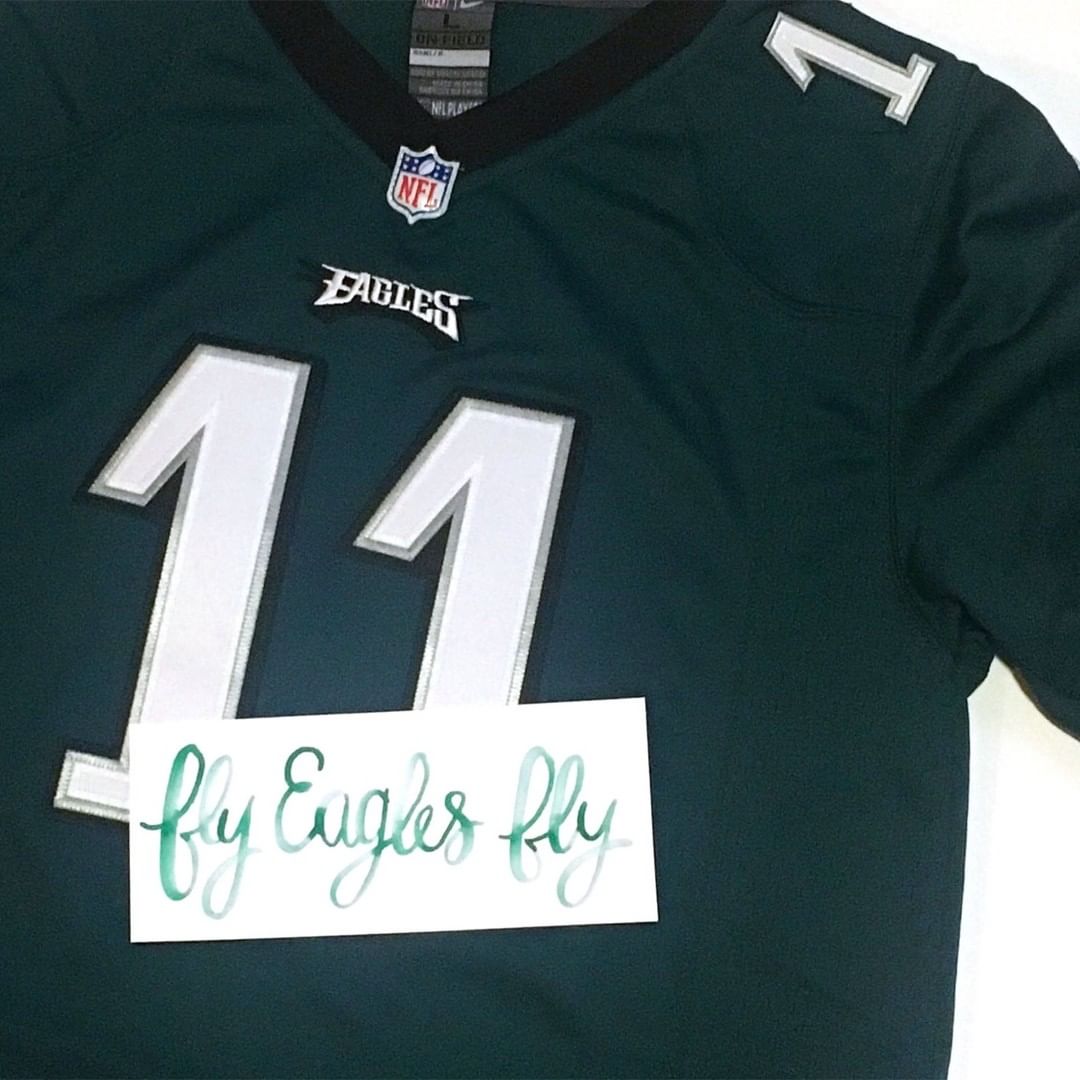 L
ON FIELD
NFL PLAYERS
NFL
EAGLES
1
11
fly Eagles fly